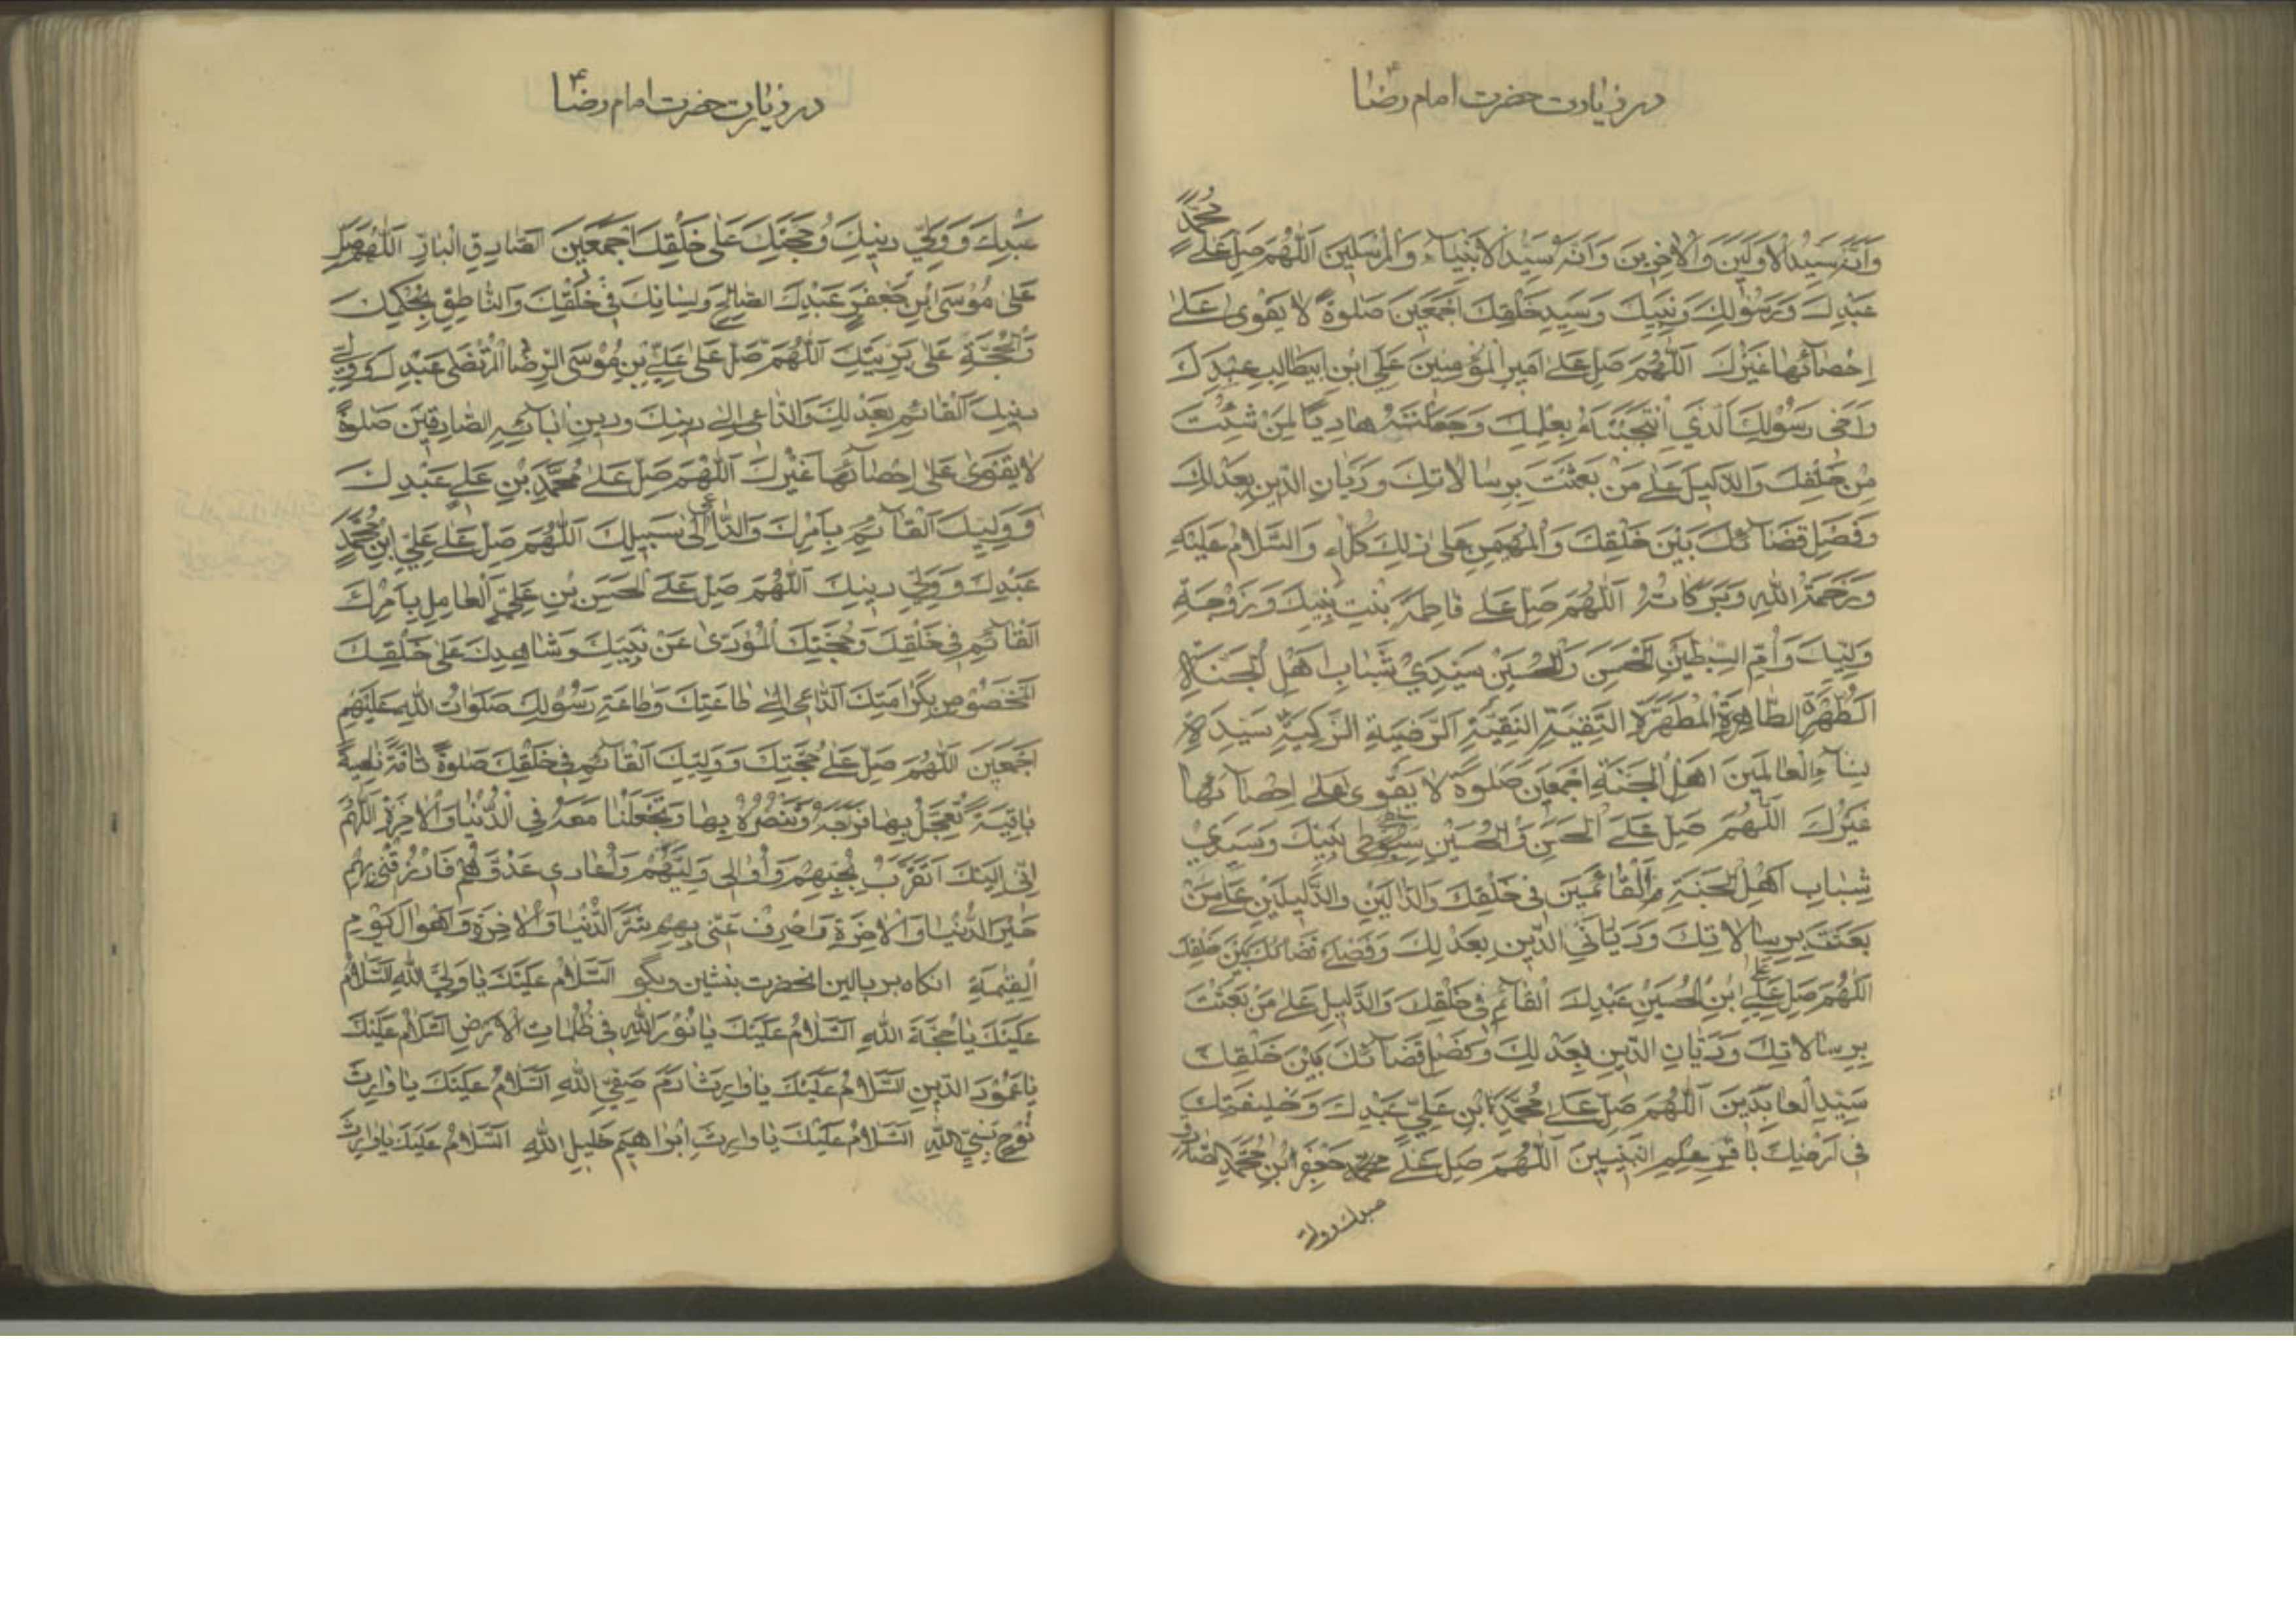 در زیارت حضرت امام رضا ع
وَاَنَّهُ سَیِّدُ الْاَوَّلینَ وَالْاٰخِرینَ وَاَنَّهُ سَیِّدُ الْاَنْبِیآءِ وَالْمُرْسَلینَ اَللّٰهُمَّ صَلِّ عَلٰی مُحَمَّدٍ
عَبْدِكَ وَرَسُولِكَ وَنَبِیِّكَ وَسَیِّدِ خَلْقِكَ اَجْمَعینَ صَلٰوةً لا یَقْوٰی عَلٰی
اِحْصآئِها غَیْرُكَ اَللّٰهُمَّ صَلِّ عَلٰی اَمیرِ الْمُؤْمِنینَ عَلِیِّ ابْنِ ابیطالِبٍ عَبْدِكَ
وَاَخی رَسُوْلِكَ الَّذی انْتَجَبْتَهُ بِعِلْمِكَ وَجَعَلْتَهُ هادِیًا لِمَنْ شِئْتَ
مِنْ خَلْقِكَ وَالدَّلیلَ عَلٰی مَنْ بَعَثْتَ بِرِسالاتِكَ وَدَیّانِ الدّینِ بِعَدْلِكَ
وَفَصْلِ قَضآئِكَ بَیْنَ خَلْقِكَ وَالْمُهَیْمِنِ عَلٰی ذٰلِكَ كُلِّهِ وَالسَّلامُ عَلَیْهِ
وَرَحْمَةُ اللهِ وَبَرَكاتُهُ اَللّٰهُمَّ صَلِّ عَلٰی فاطِمَةَ بِنْتِ نَبِیِّكَ وَزَوْجَةِ
وَلِیِّكَ وَاُمِّ السِّبْطَیْنِ الْحَسَنِ وَالْحُسَیْنِ سَیِّدَیْ شَبابِ اَهْلِ الْجَنَّةِ
الطُّهْرَةِ الطّاهِرَةِ الْمُطَهَّرَةِ التَّقِیَّةِ النَّقِیَّةِ الرَّضِیَّةِ الزَّكِیَّةِ سَیِّدَةِ
نِسآءِ الْعالَمینَ اَهْلِ الْجَنَّةِ اَجْمَعینَ صَلٰوةً لا یَقْوٰی عَلٰی اِحْصآئِها
غَیْرُكَ اَللّٰهُمَّ صَلِّ عَلَی الْحَسَنِ وَالْحُسَیْنِ سِبْطَیْ نَبِیِّكَ وَسَیِّدَیْ
شَبابِ اَهْلِ الْجَنَّةِ وَالْقآئِمَیْنِ فی خَلْقِكَ وَالدّالَیْنِ وَالدَّلیلَیْنِ عَلٰی مَنْ
بَعَثْتَ بِرِسالاتِكَ وَدَیّانَیِ الدّینِ بِعَدْلِكَ وَفَصْلَیْ قَضآئِكَ بَیْنَ خَلْقِكَ
اَللّٰهُمَّ صَلِّ عَلٰی عَلِیِّ ابْنِ الْحُسَیْنِ عَبْدِكَ الْقآئِمِ فی خَلْقِكَ وَالدَّلیلِ عَلٰی مَنْ بَعَثْتَ
بِرِسالاتِكَ وَدَیّانِ الدّینِ بِعَدْلِكَ وَفَصْلِ قَضآئِكَ بَیْنَ خَلْقِكَ
سَیِّدِ الْعابِدینَ اَللّٰهُمَّ صَلِّ عَلٰی مُحَمَّدِ ابْنِ عَلِیٍّ عَبْدِكَ وَخَلیفَتِكَ
فی اَرْضِكَ باقِرِ عِلْمِ النَّبِیّینَ اَللّٰهُمَّ صَلِّ عَلٰی جَعْفَرِ ابْنِ مُحَمَّدٍ الصّادِقِ
عبدك وولی
در زیارت حضرت امام رضا ع
عَبْدِكَ وَوَلِیِّ دینِكَ وَحُجَّتِكَ عَلٰی خَلْقِكَ اَجْمَعینَ الصّادِقِ الْبارِّ اَللّٰهُمَّ صَلِّ
عَلٰی مُوْسَی ابْنِ جَعْفَرٍ عَبْدِكَ الصّالِحِ وَلِسانِكَ فی خَلْقِكَ وَالنّاطِقِ بِحُكْمِكَ
وَالْحُجَّةِ عَلٰی بَرِیَّتِكَ اَللّٰهُمَّ صَلِّ عَلٰی عَلِیِّ بْنِ مُوْسَی الرِّضَا الْمُرْتَضٰی عَبْدِكَ وَوَلِیِّ
دینِكَ الْقآئِمِ بِعَدْلِكَ وَالدّاعی اِلٰی دینِكَ وَدینِ اٰبآئِهِ الصّادِقینَ صَلٰوةً
لا یَقْوٰی عَلٰی اِحْصآئِها غَیْرُكَ اَللّٰهُمَّ صَلِّ عَلٰی مُحَمَّدِ بْنِ عَلِیٍّ عَبْدِكَ
وَوَلِیِّكَ الْقآئِمِ بِاَمْرِكَ وَالدّاعی اِلٰی سَبیلِكَ اَللّٰهُمَّ صَلِّ عَلٰی عَلِیِّ ابْنِ مُحَمَّدٍ
عَبْدِكَ وَوَلِیِّ دینِكَ اَللّٰهُمَّ صَلِّ عَلَی الْحَسَنِ بْنِ عَلِیٍّ الْعامِلِ بِاَمْرِكَ
الْقآئِمِ فی خَلْقِكَ وَحُجَّتِكَ الْمُؤَدّی عَنْ نَبِیِّكَ وَشاهِدِكَ عَلٰی خَلْقِكَ
الْمَخْصُوْصِ بِكَرامَتِكَ الدّاعی اِلٰی طاعَتِكَ وَطاعَةِ رَسُوْلِكَ صَلَواتُ اللهِ عَلَیْهِمْ
اَجْمَعینَ اَللّٰهُمَّ صَلِّ عَلٰی حُجَّتِكَ وَوَلِیِّكَ الْقآئِمِ فی خَلْقِكَ صَلٰوةً تامَّةً نامِیَةً
باقِیَةً تُعَجِّلُ بِها فَرَجَهُ وَتَنْصُرُهُ بِها وَتَجْعَلُنا مَعَهُ فِی الدُّنْیا وَالْاٰخِرَةِ اَللّٰهُمَّ
اِنّی اِلَیْكَ اَتَقَرَّبُ بِحُبِّهِمْ وَاُوالی وَلِیَّهُمْ وَاُعادی عَدُوَّهُمْ فَارْزُقْنی بِهِمْ
خَیْرَ الدُّنْیا وَالْاٰخِرَةِ وَاصْرِفْ عَنّی بِهِمْ شَرَّ الدُّنْیا وَالْاٰخِرَةِ وَاَهْوالَ یَوْمِ
الْقِیٰمَةِ انكاه بر بالین انحضرت بنشین وبگو اَلسَّلامُ عَلَیْكَ یا وَلِیَّ اللهِ اَلسَّلامُ
عَلَیْكَ یا حُجَّةَ اللهِ اَلسَّلامُ عَلَیْكَ یا نُوْرَ اللهِ فی ظُلُماتِ الْاَرْضِ اَلسَّلامُ عَلَیْكَ
یا عَمُوْدَ الدّینِ اَلسَّلامُ عَلَیْكَ یا وارِثَ اٰدَمَ صَفِیِّ اللهِ اَلسَّلامُ عَلَیْكَ یا وارِثَ
نُوْحٍ نَبِیِّ اللهِ اَلسَّلامُ عَلَیْكَ یا وارِثَ اِبْراهیمَ خَلیلِ اللهِ اَلسَّلامُ عَلَیْكَ یا وارِثَ